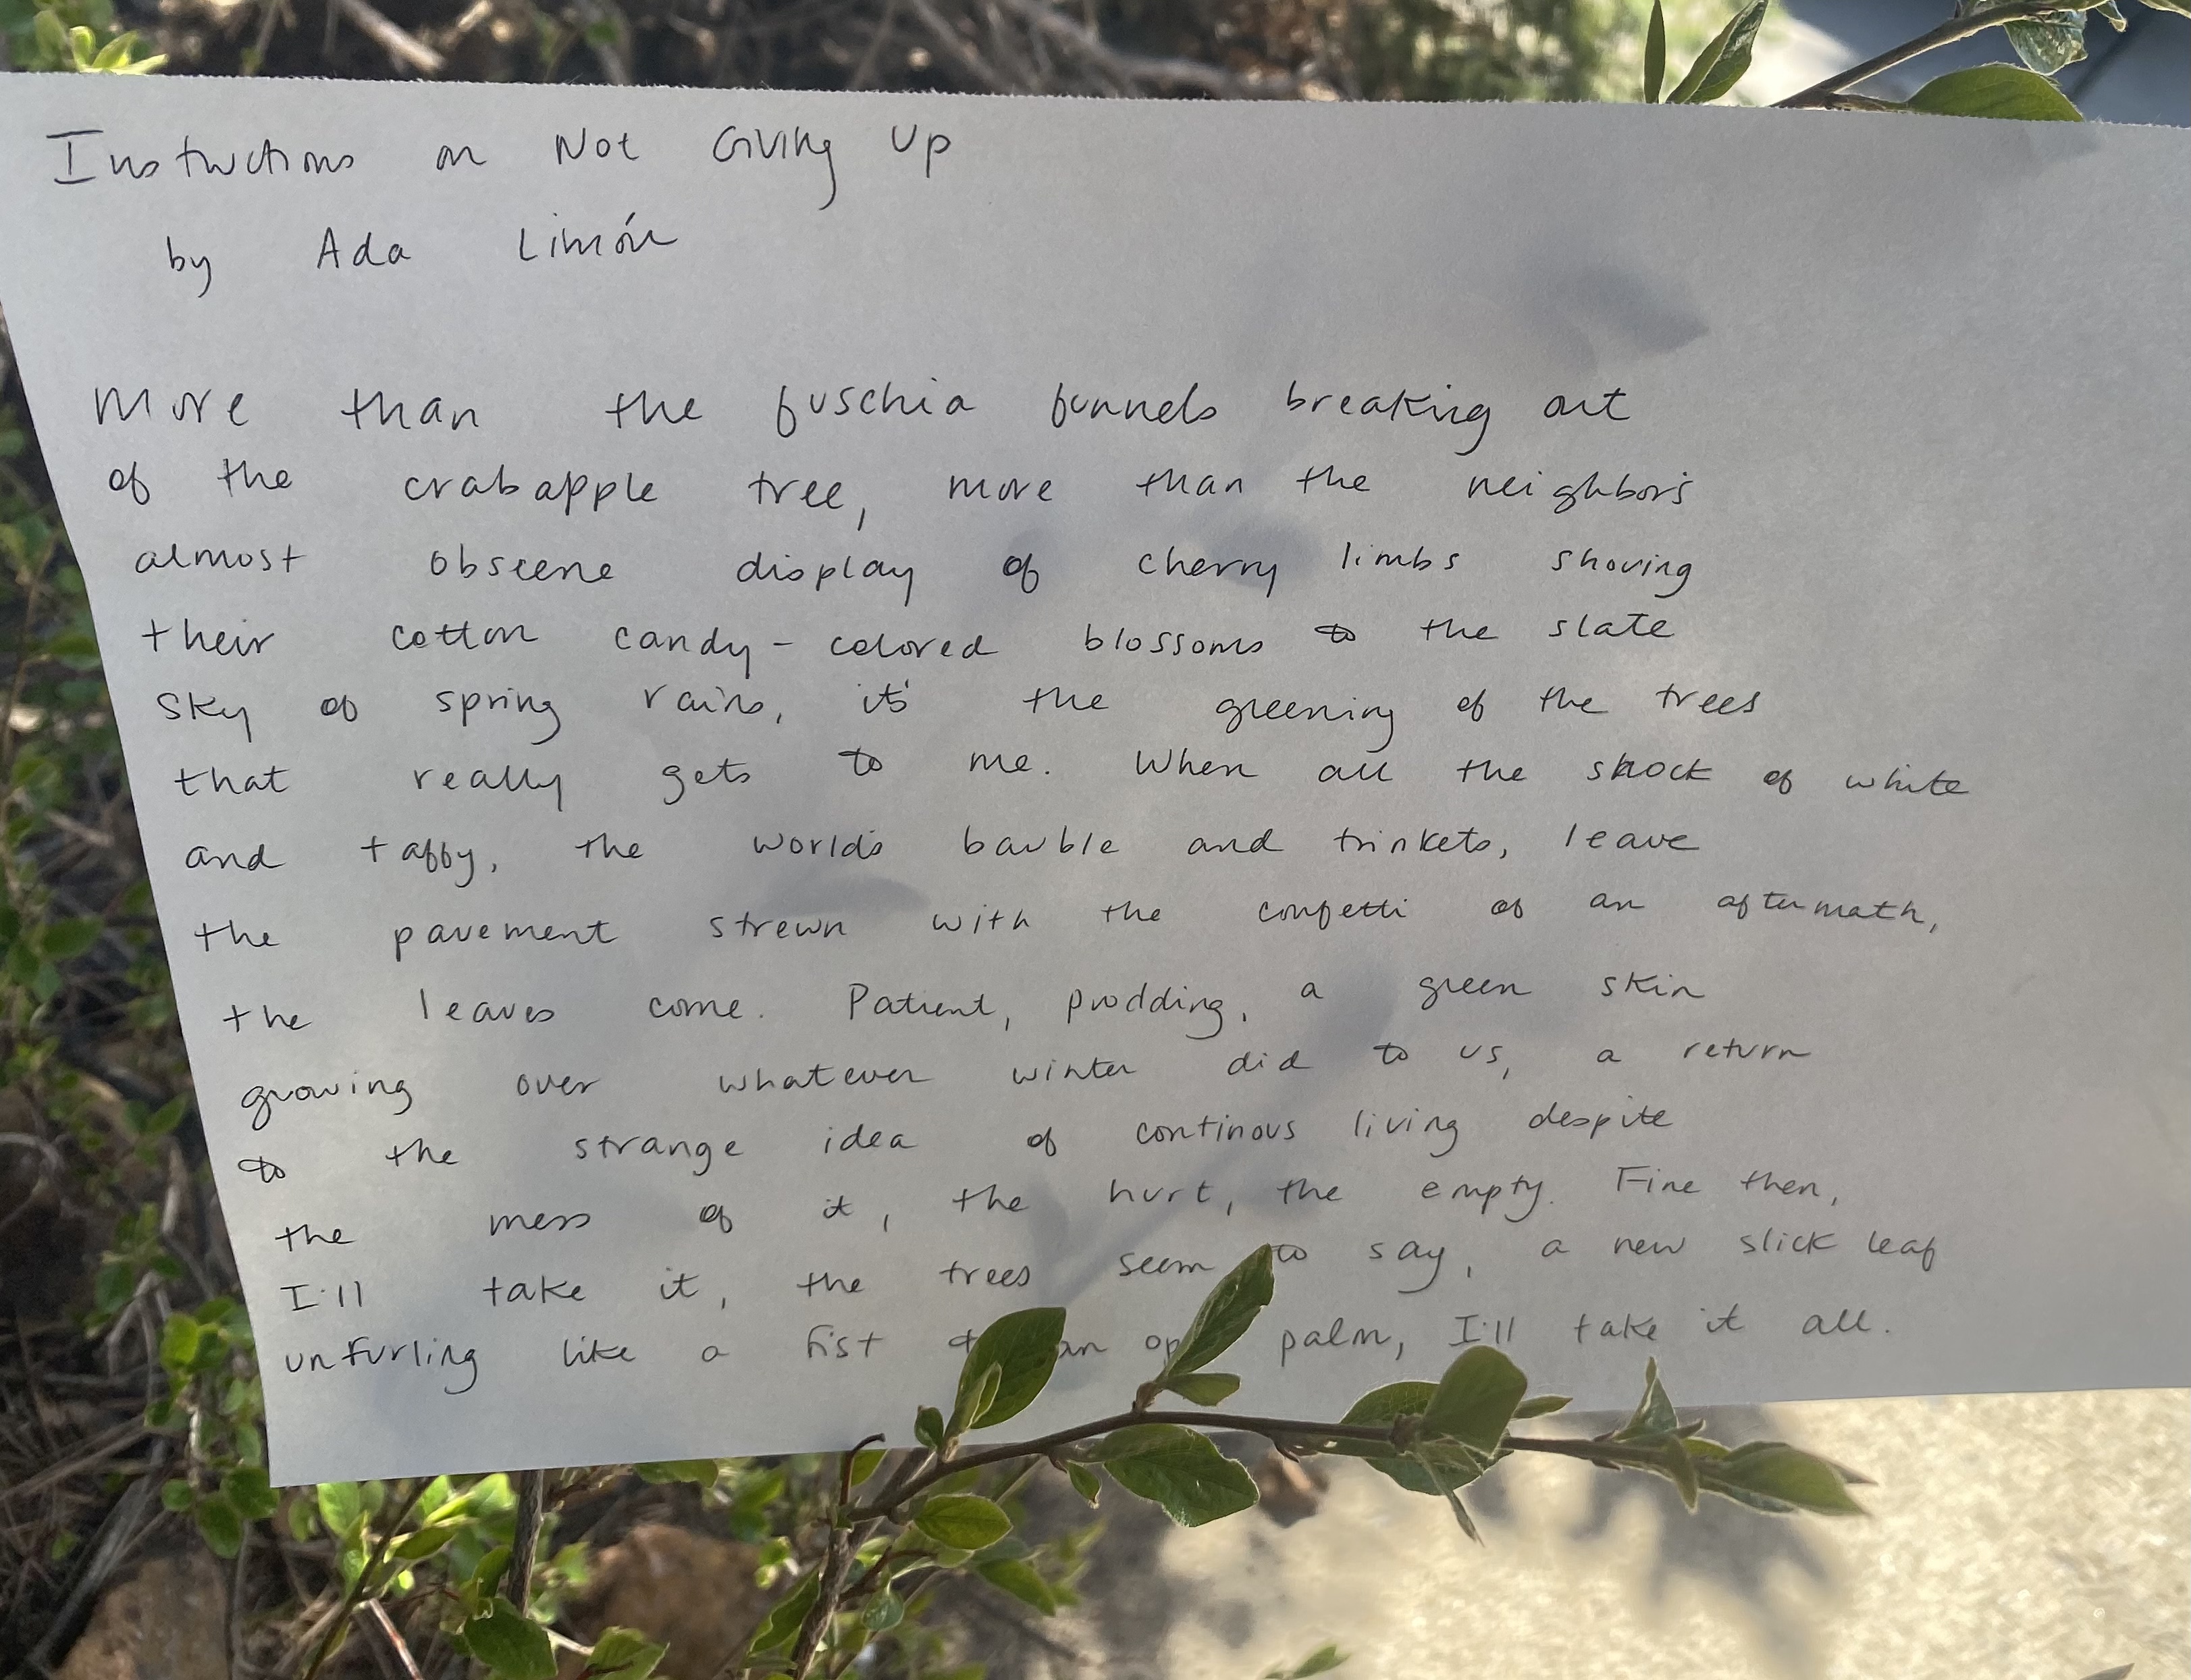 Instructions on Not Giving Up
by Ada Limón
More than the fuschia funnels breaking out
of the crabapple tree, more than the neighbor's
almost obscene display of cherry limbs shoving
their cotton candy-colored blossoms to the slate
sky of spring rains, it's the greening of the trees
that really gets to me. When all the shock of white
and taffy, the world's bauble and trinkets, leave
the pavement strewn with the confetti of an aftermath,
the leaves come. Patient, prodding, a green skin
growing over whatever winter did to us, a return
to the strange idea of continous living despite
the mess of it, the hurt, the empty. Fine then,
I'll take it, the trees seem to say, a new slick leaf
unfurling like a fist an palm, I'll take it all.